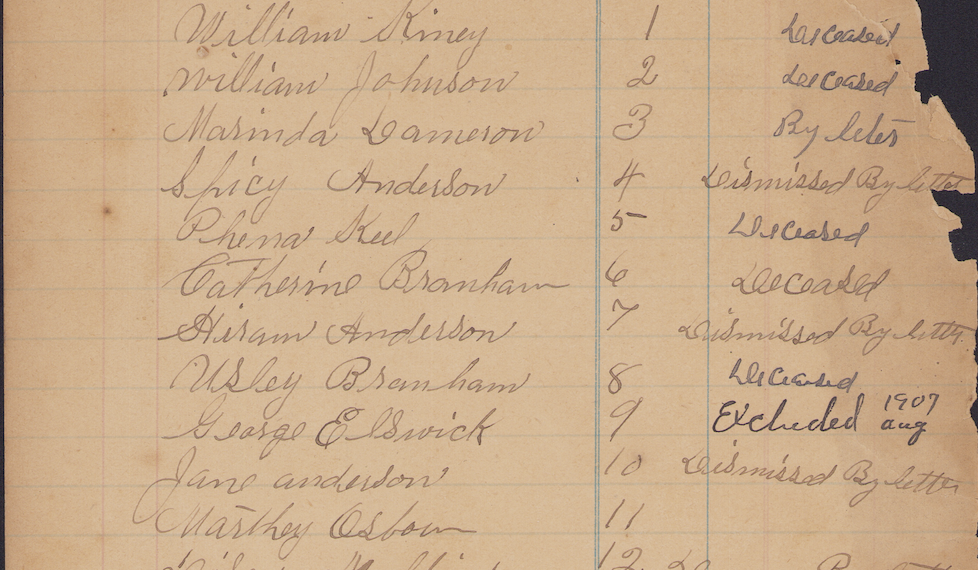 William Kiney 1 Deceased
William Johnson 2 Deceased
Marinda Dameron 3 By leter
Spicy Anderson 4 Dismissed By letter
Phena Keel 5 Deceased
Catherine Branham 6 Deceased
Hiram Anderson 7 Dismissed By letter
Usley Branham 8 Deceased
George Elswick 9 Excluded 1907 aug
Jane anderson 10 Dismissed By letter
Marthey Osborn 11
12